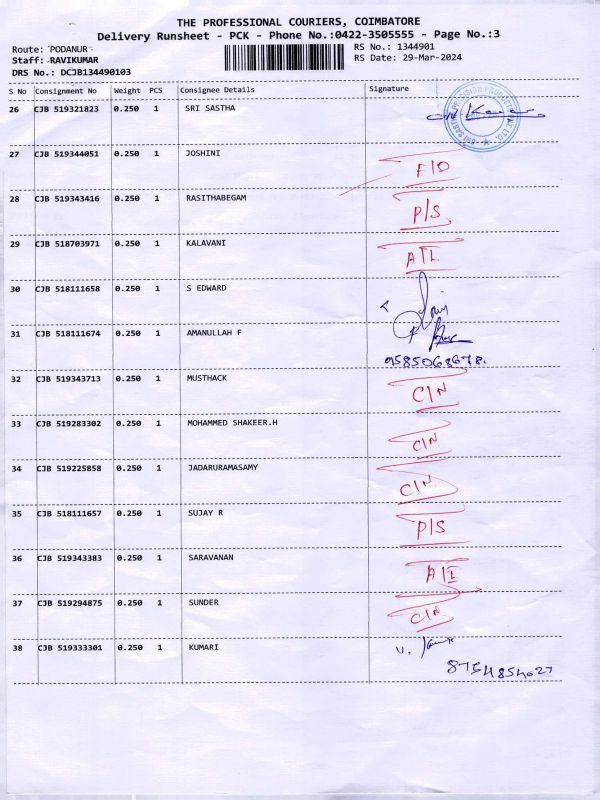 THE PROFESSIONAL COURIERS, COIMBATORE
Delivery Runsheet - PCK - Phone No.:0422-3505555 - Page No.:3
Route: PODANUR RS No.: 1344901
Staff: RAVIKUMAR RS Date: 29-Mar-2024
DRS No.: DCJB134490103
S No Consignment No Weight PCS Consignee Details Signature
26 CJB 519321823 0.250 1 SRI SASTHA
27 CJB 519344051 0.250 1 JOSHINI F/D
28 CJB 519343416 0.250 1 RASITHABEGAM P/S
29 CJB 518703971 0.250 1 KALAVANI A/L
30 CJB 518111658 0.250 1 S EDWARD
31 CJB 518111674 0.250 1 AMANULLAH F
9585068678.
32 CJB 519343713 0.250 1 MUSTHACK C/N
33 CJB 519283302 0.250 1 MOHAMMED SHAKEER.H C/N
34 CJB 519225858 0.250 1 JADARURAMASAMY C/N
35 CJB 518111657 0.250 1 SUJAY R P/S
36 CJB 519343383 0.250 1 SARAVANAN A/I
37 CJB 519294875 0.250 1 SUNDER C/N
38 CJB 519333301 0.250 1 KUMARI
8754854027